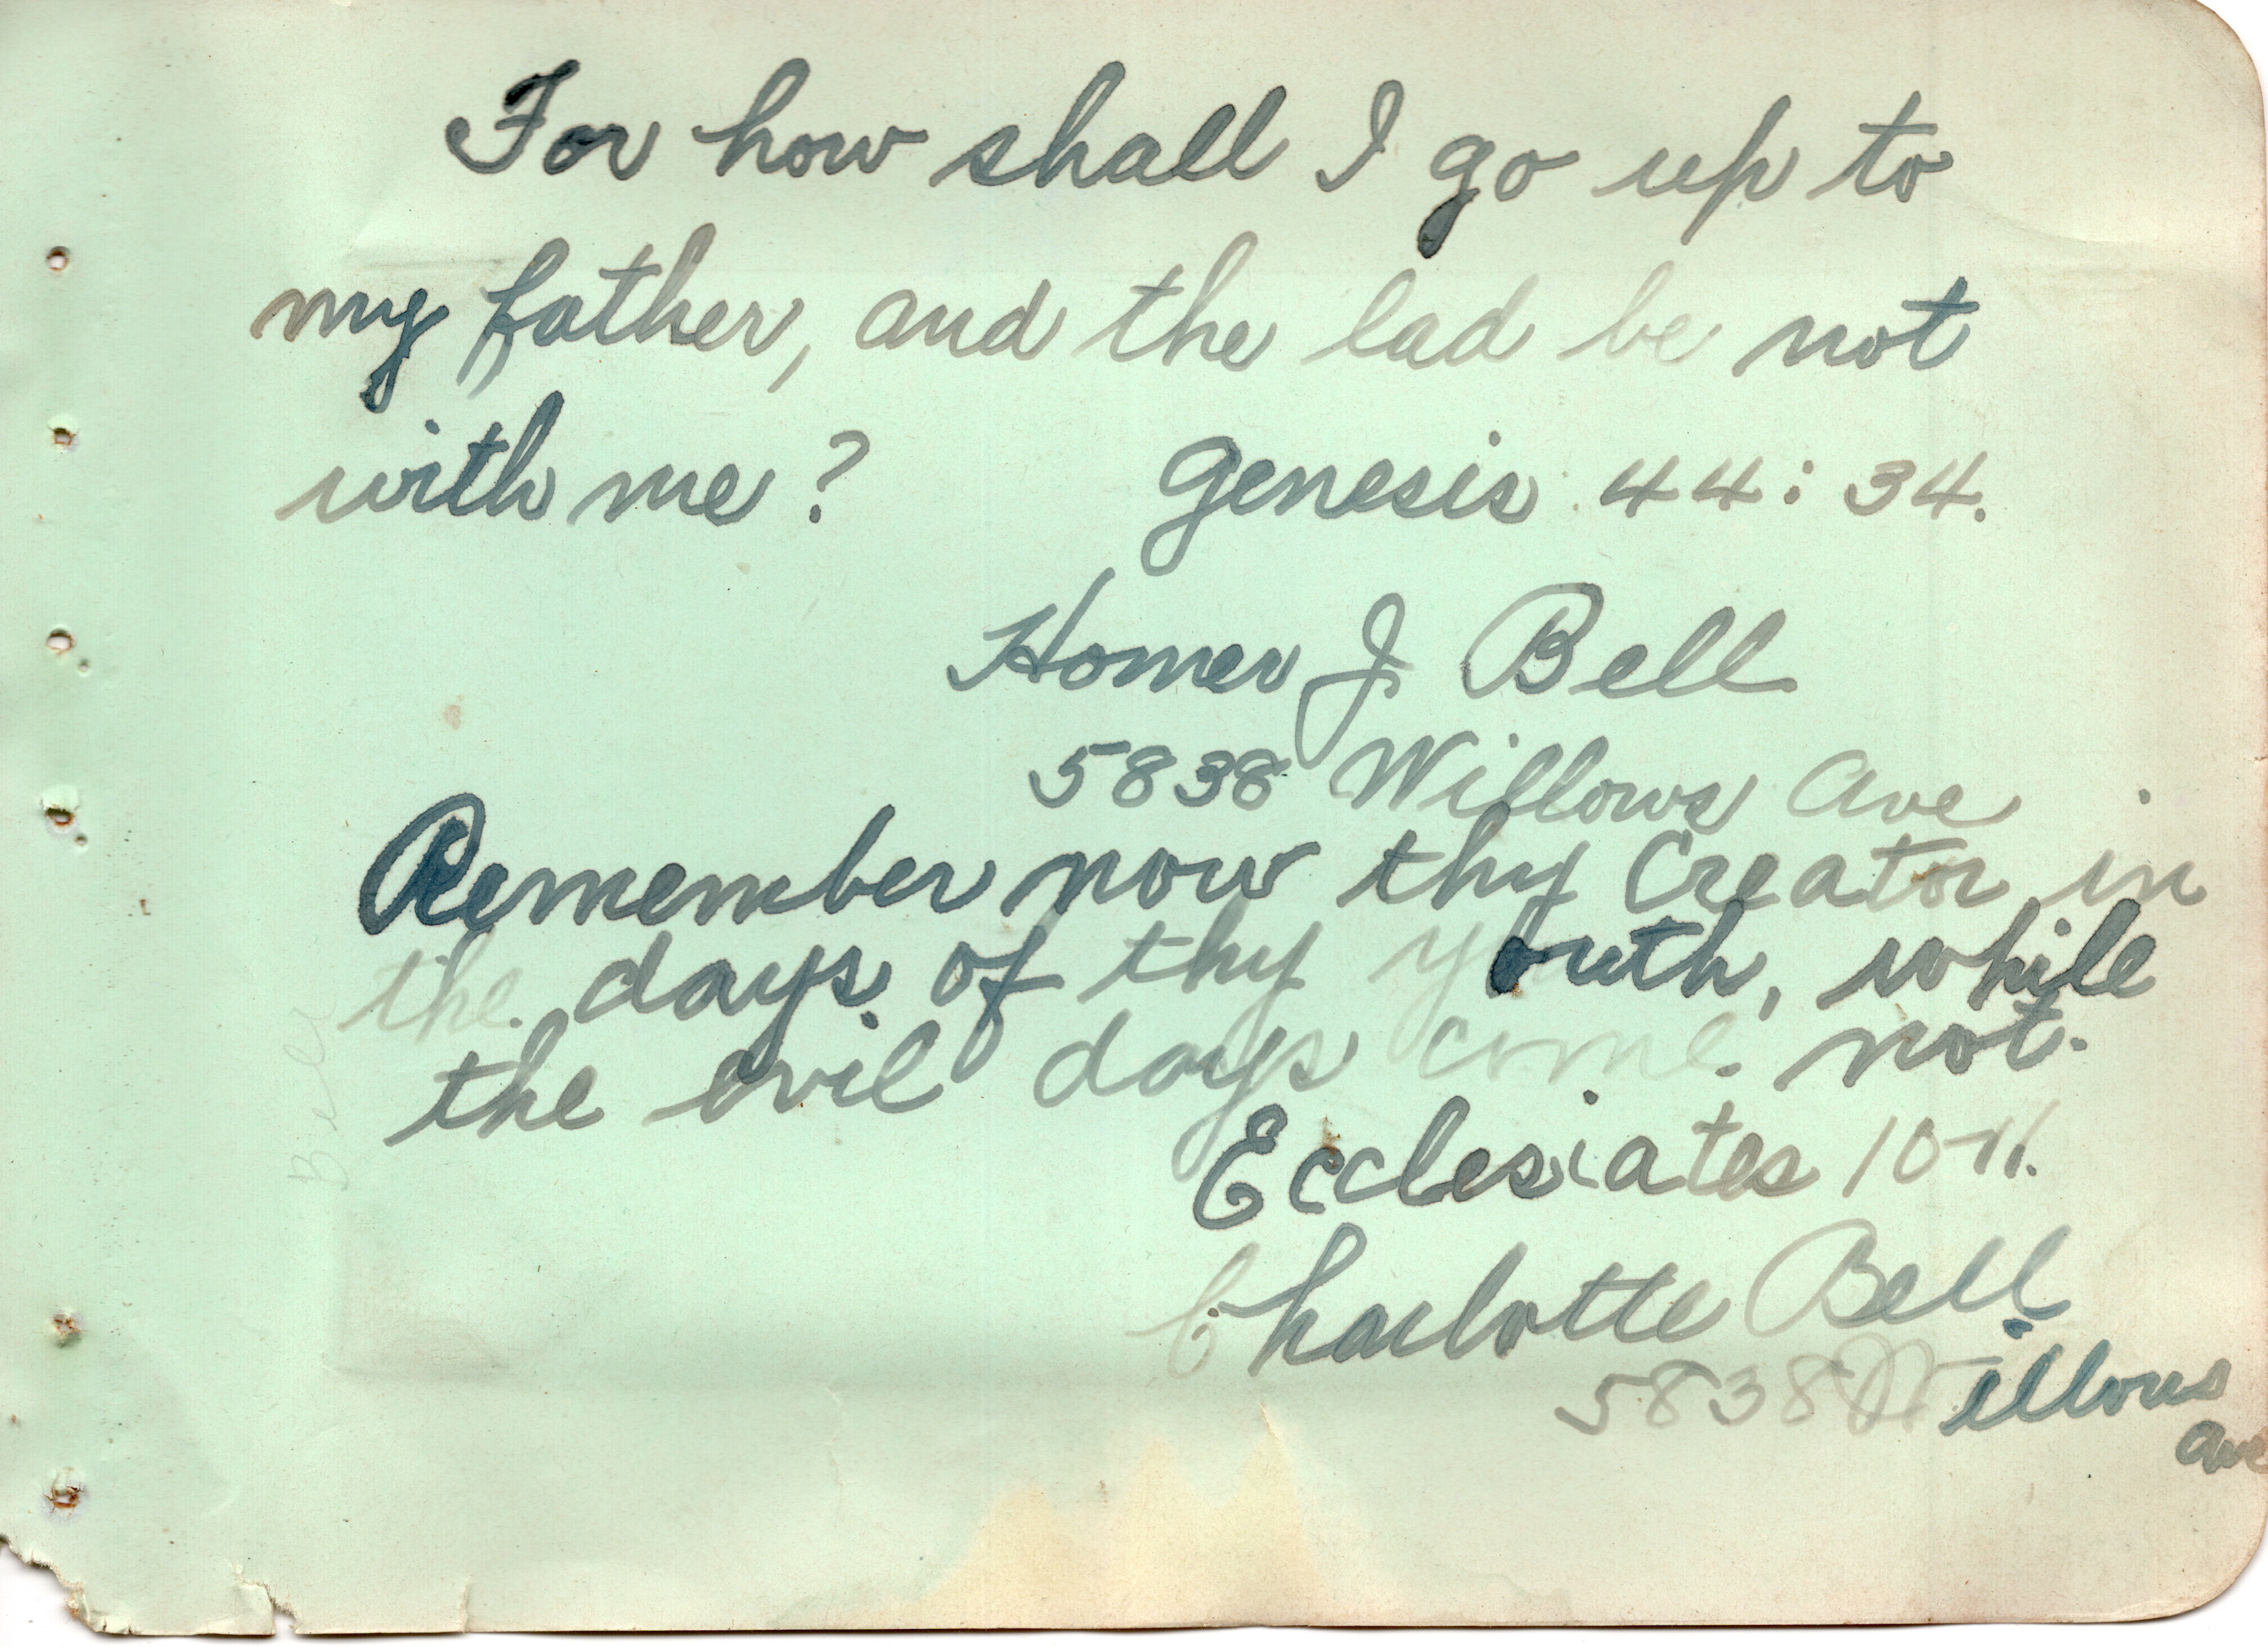 For how shall I go up to
my father, and the lad be not
with me? Genesis 44:34.
Homer J Bell
5838 Willows Ave
Remember now thy Creator in
the days of thy youth, while
the evil days come not.
Ecclesiates 10-11.
Charlotte Bell
5838 Willows
Ave